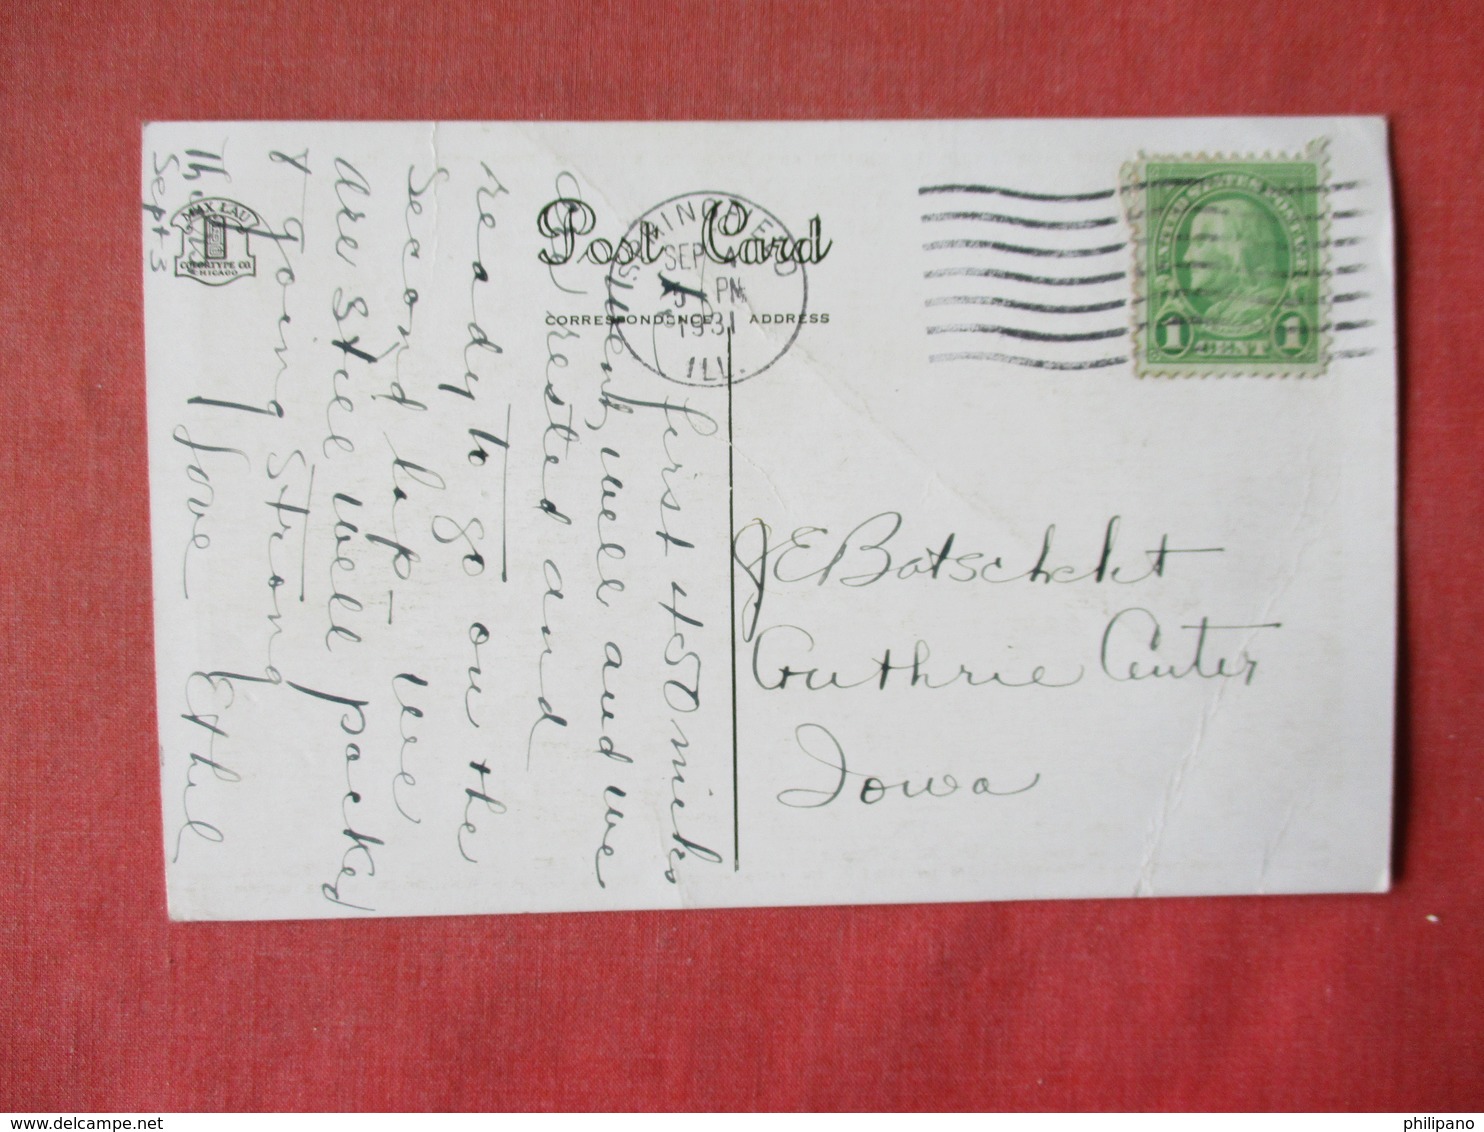 Post Card
CORRESPONDENCE
ADDRESS
SPRINGFIELD
SEP 4
PM
1931
ILL.
UNITED STATES POSTAGE
1 CENT 1
MAX LAU
COLORTYPE CO.
CHICAGO
J E Batschelet
Guthrie Center
Iowa
Thurs
Sept 3
first 450 miles
went well and we
are rested and
ready to go on the
second lap - we
are still well packed
& going strong
Love Ethel
philipano